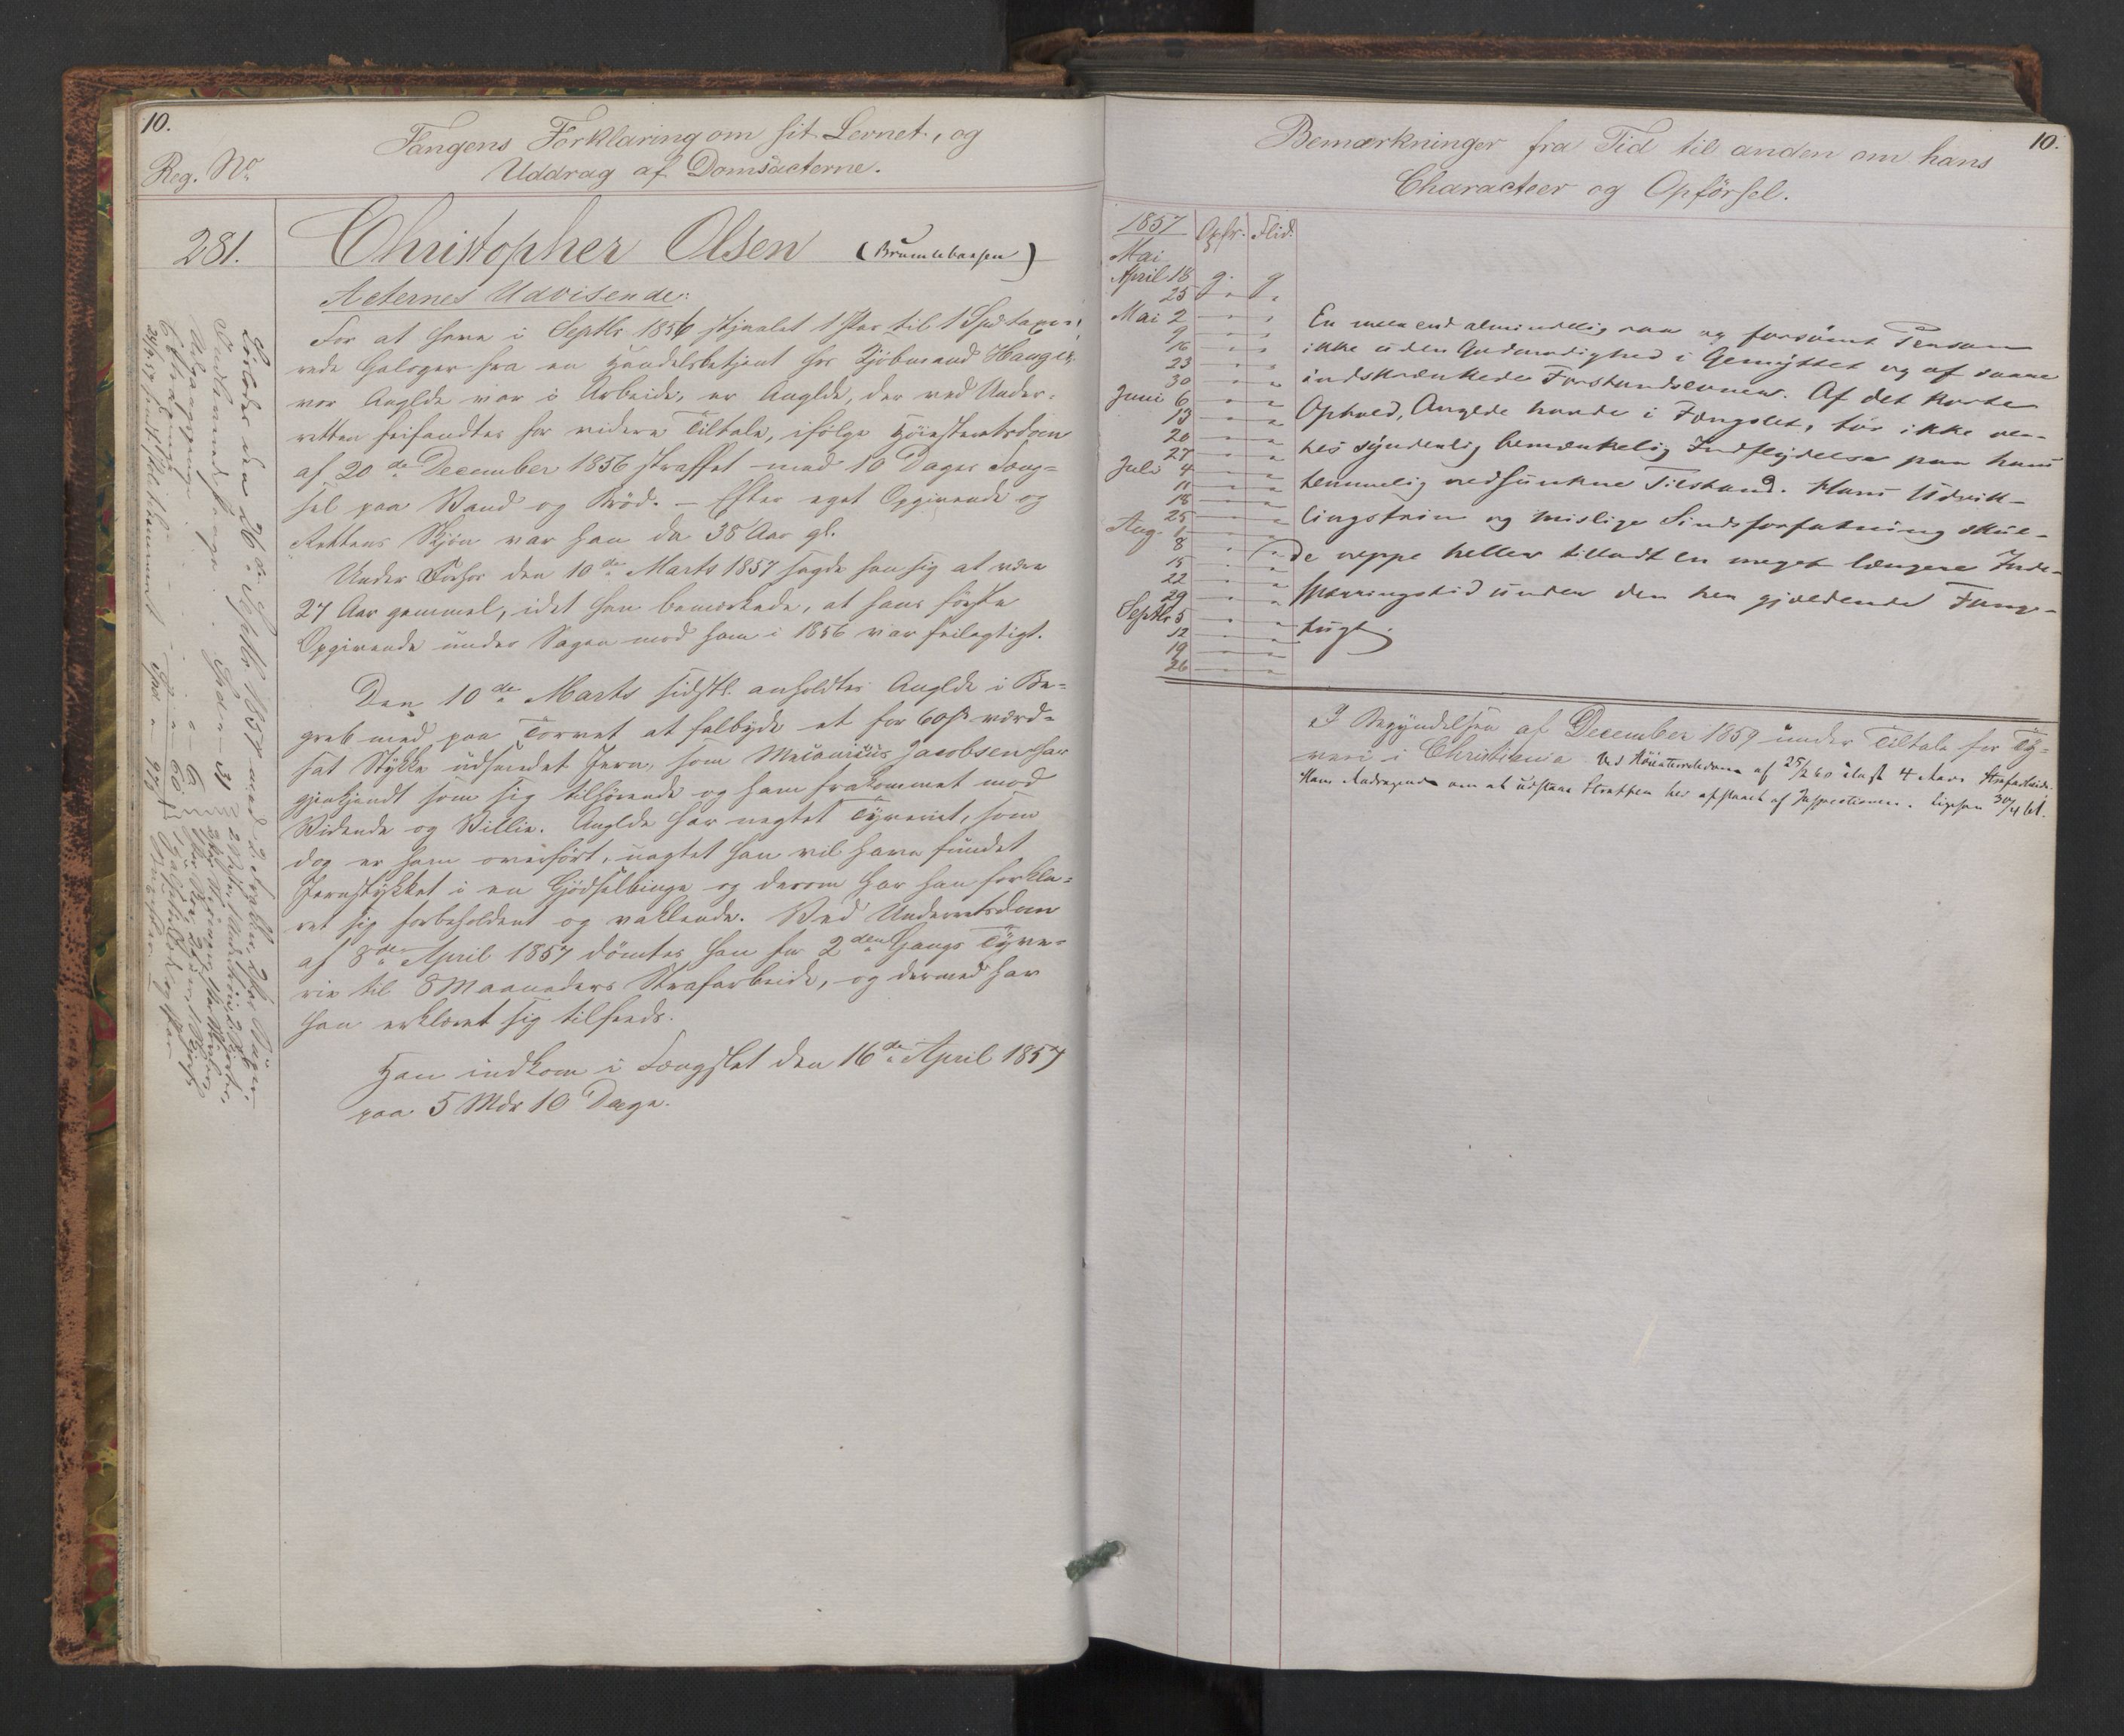 10.
Reg. No.
Fangens Forklaring om sit Levnet, og
Uddrag af Domsacterne.
281.
Christopher Olsen (Brumlebassen)
Acternes Udvisende:
For at have i Septbr 1856 stjaalet 1 Par til 1 Spd taxe-
rede Galoger fra en Handelsbetjent hos Kjöbmand Hauger,
vor Anglde var i Arbeide, er Anglde, der ved Under-
retten frifandtes for videre Tiltale, ifölge Höiesteretsdom
af 20de December 1856 straffet med 10 Dages Fæng-
sel paa Vand og Bröd. – Efter eget Opgivende og
Rettens Skjön var han da 38 Aar gl.
Under Forhör den 10de Marts 1857 sagde han sig at være
27 Aar gammel, idet han bemærkede, at hans förste
Opgivende under Sagen mod ham i 1856 var feilagtigt.
Den 10de Marts sidstl. anholdtes Anglde i Be-
greb med paa Torvet at falbyde et for 60 ß værd-
sat Stykke udsmedet Jern, som Jacobsen har
gjenkjendt som sig tilhörende og ham frakommet mod
Vidende og Villie. Anglde har negtet Tyveriet, som
dog er ham overfört, uagtet han vil have fundet
Jernstykket i en Gjödselbinge og derom har han forkla-
ret sig forbeholdent og vaklende. Ved Underretsdom
af 8de April 1857 dömtes han for 2den Gangs Tyve-
rie til 8 Maaneders Strafarbeide, og dermed har
han erklæret sig tilfreds.
Han indkom i Fængslet den 16de April 1857
paa 5 Mdr 10 Dage.
Löslodes den 26de Septbr 1857 med 2
Indleverede Penge
Udgangspenge
10.
Bemærkninger fra Tid til anden om hans
Characteer og Opförsel.
1857 Opför. Flid.
Mai
April 18 g. g
25 " "
Mai 2 " "
9 " "
16 " "
23 " "
30 " "
Juni 6 " "
13 " "
20 " "
27 " "
Juli 4 " "
11 " "
18 " "
25 " "
Aug. 1 " "
8 " "
15 " "
22 " "
29 " "
Septbr 5 " "
12 " "
19 " "
26 " "
En meer end almindelig raa og forsömt Person
ikke uden Godmodighed i Gemyttet og af saare
indskrænkede Forstandsevner. Af det korte
Ophold, Anglde havde i Fængslet, tör ikke ven-
tes synderlig bemærkelig Indflydelse paa hans
temmelig nedsunkne Tilstand. Hans Udvik-
lingstrin og mislige Sindsforfatning skul-
de neppe heller tilladt en meget længere Inde-
spærringstid under den her gjældende Fange-
tugt.
I Begyndelsen af December 1859 under Tiltale for Ty-
veri i Christiania. Ved Höiesteretsdom af 25/2 60 ilagt 4 Aars Strafarbeide.
Hans Andragende om at udstaae Straffen her afslaaet af Inspectionen. Ligesaa 30/4 61.